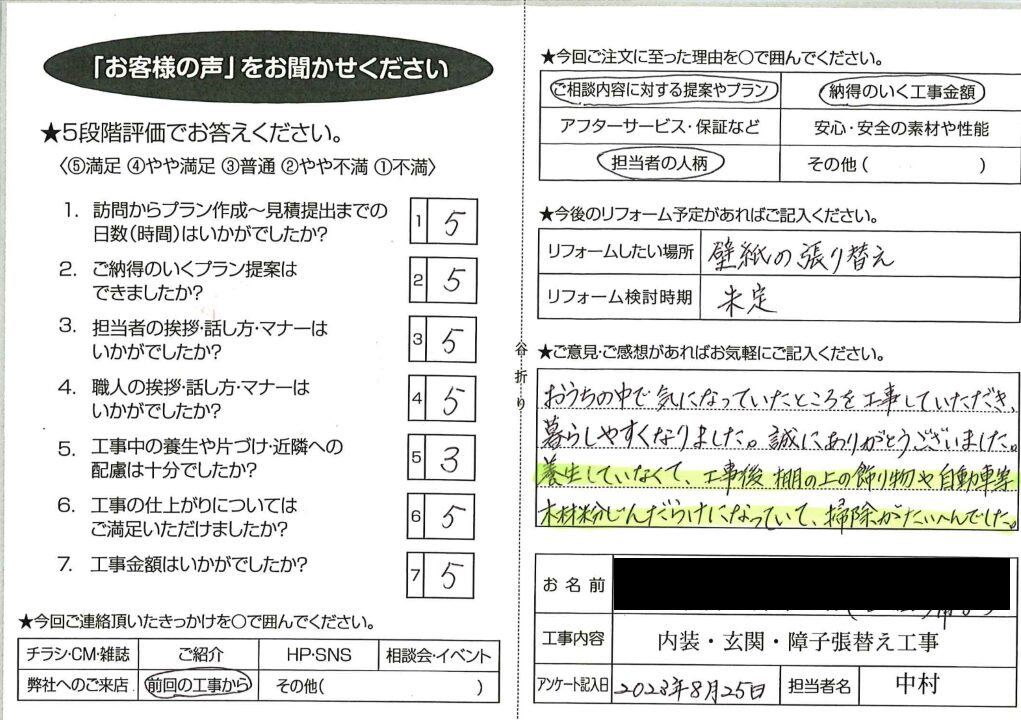 「お客様の声」をお聞かせください
★5段階評価でお答えください。
〈⑤満足 ④やや満足 ③普通 ②やや不満 ①不満〉
1. 訪問からプラン作成～見積提出までの
日数(時間)はいかがでしたか?
1 5
2. ご納得のいくプラン提案は
できましたか?
2 5
3. 担当者の挨拶・話し方・マナーは
いかがでしたか?
3 5
4. 職人の挨拶・話し方・マナーは
いかがでしたか?
4 5
5. 工事中の養生や片づけ・近隣への
配慮は十分でしたか?
5 3
6. 工事の仕上がりについては
ご満足いただけましたか?
6 5
7. 工事金額はいかがでしたか?
7 5
★今回ご連絡頂いたきっかけを○で囲んでください。
チラシ・CM・雑誌 ご紹介 HP・SNS 相談会・イベント
弊社へのご来店 前回の工事から その他( )
谷折り
★今回ご注文に至った理由を○で囲んでください。
ご相談内容に対する提案やプラン 納得のいく工事金額
アフターサービス・保証など 安心・安全の素材や性能
担当者の人柄 その他( )
★今後のリフォーム予定があればご記入ください。
リフォームしたい場所 壁紙の張り替え
リフォーム検討時期 未定
★ご意見・ご感想があればお気軽にご記入ください。
おうちの中で気になっていたところを工事していただき、
暮らしやすくなりました。誠にありがとうございました。
養生していなくて、工事後 棚の上の飾り物や自動車等
木材粉じんだらけになっていて、掃除がたいへんでした。
お名前
工事内容 内装・玄関・障子張替え工事
アンケート記入日 2023年8月25日 担当者名 中村